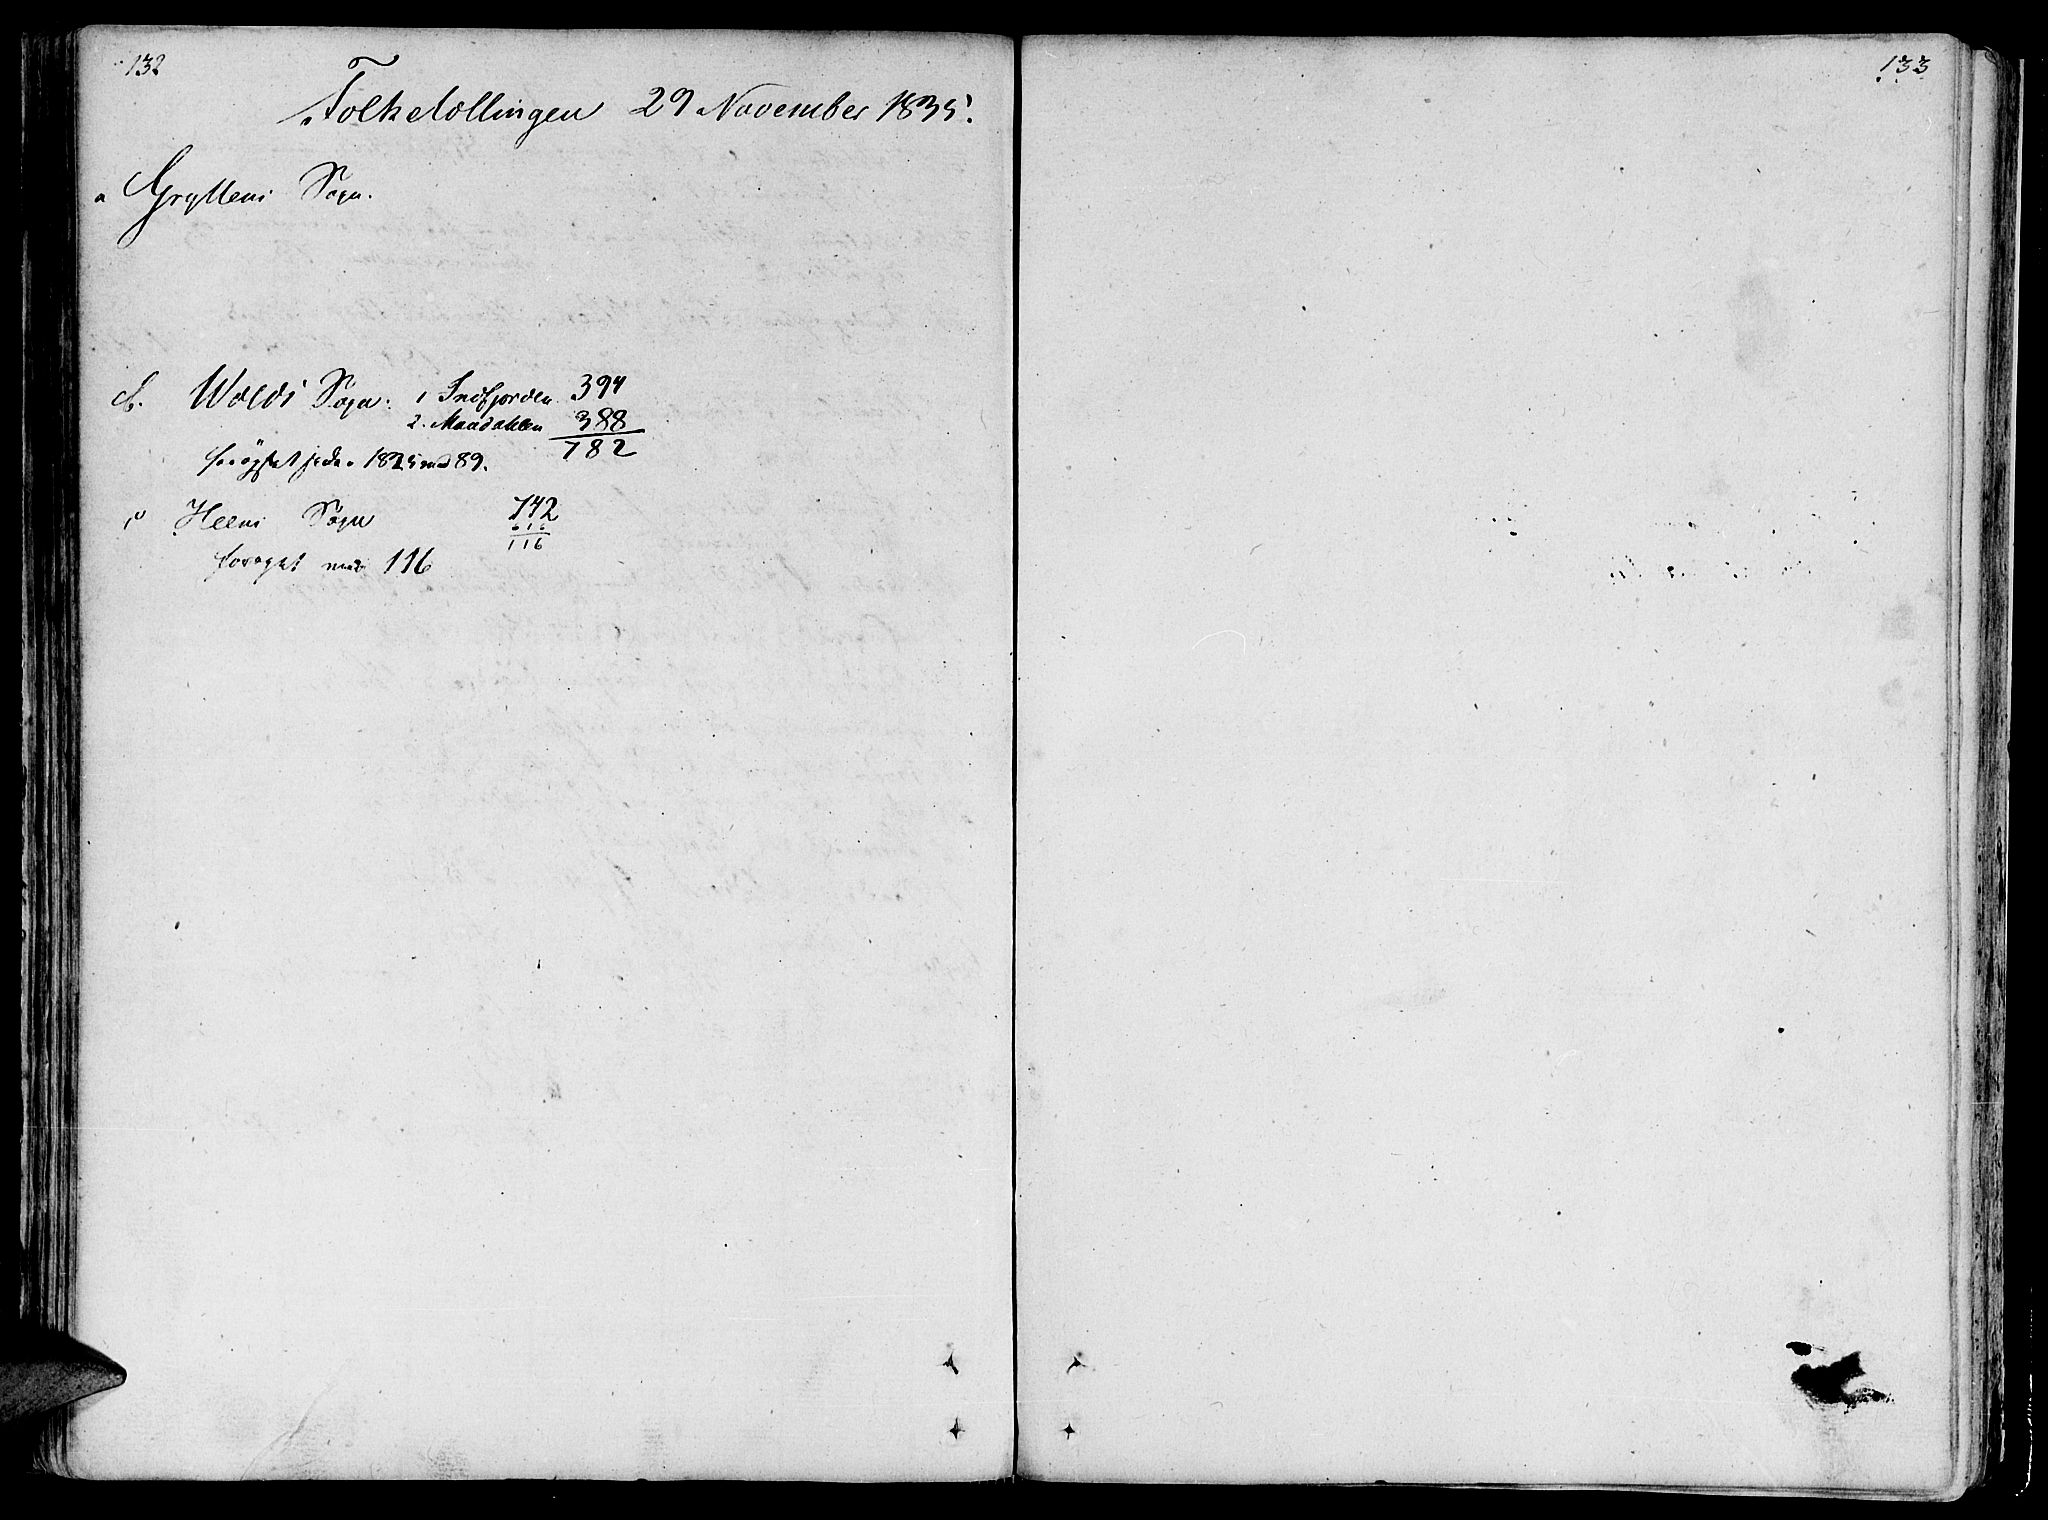 132
Folketællingen 29 November 1835.
a Gryttens Sogn.
b. Wolds Sogn: 1 Indfjorden 394
2. Maadahlen 388
782
forögtet siden 1825 med 89.
c Heens Sogn 742
616
116
foröget med 116
133